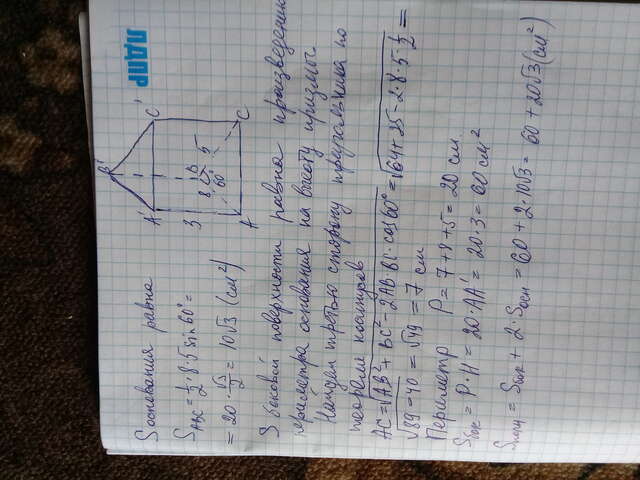 S основания равна
S ABC = 1/2 · 8 · 5 sin 60° =
= 20 · √3/2 = 10√3 (см²)
B'
A'
C'
3
B
8
5
60°
A
C
ЛДПР
S боковой поверхности равна произведению
периметра основания на высоту призмы.
Найдем третью сторону треугольника по
теореме косинусов
AC = √AB² + BC² - 2AB·BC·cos60° = √64 + 25 - 2·8·5·1/2 =
√89 - 40 = √49 = 7 см
Периметр P = 7+8+5 = 20 см
Sбок = P·H = 20·AA' = 20·3 = 60 см²
Sполн = Sбок + 2·Sосн = 60 + 2·10√3 = 60 + 20√3 (см²)